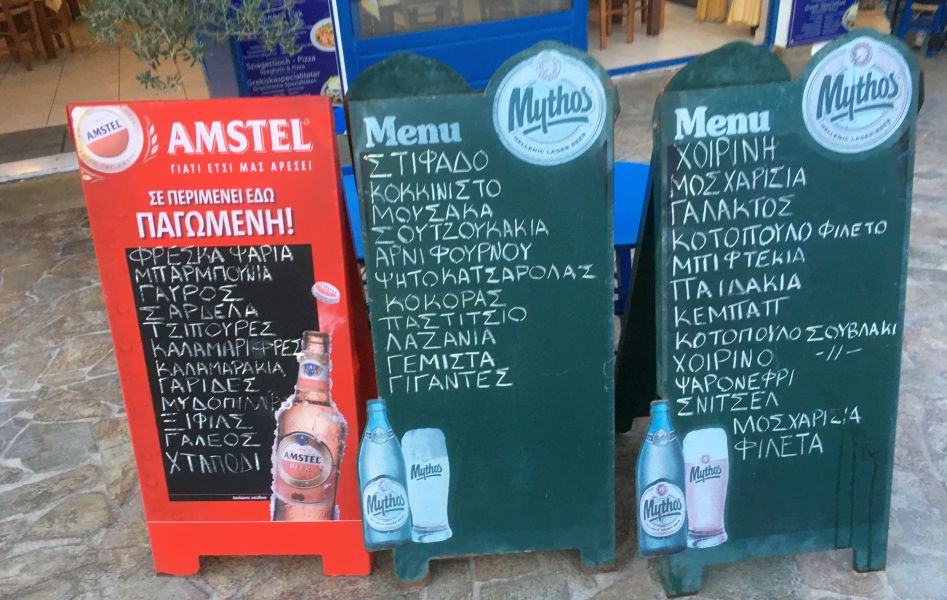 Spagettioch - Pizza
Spaghetti & Pizza
Grekiskaspecialiteter
AMSTEL
AMSTEL
ΓΙΑΤΙ ΕΤΣΙ ΜΑΣ ΑΡΕΣΕΙ
ΣΕ ΠΕΡΙΜΕΝΕΙ ΕΔΩ
ΠΑΓΩΜΕΝΗ!
ΦΡΕΣΚΑ ΨΑΡΙΑ
ΜΠΑΡΜΠΟΥΝΙΑ
ΓΑΥΡΟΣ
ΣΑΡΔΕΛΑ
ΤΣΙΠΟΥΡΕΣ
ΚΑΛΑΜΑΡΙ ΦΡΕΣ
ΚΑΛΑΜΑΡΑΚΙΑ
ΓΑΡΙΔΕΣ
ΞΙΦΙΑΣ
ΓΑΛΕΟΣ
ΧΤΑΠΟΔΙ
AMSTEL
BEER
Απολαύστε υπεύθυνα
Menu
Mythos
HELLENIC LAGER BEER
ΣΤΙΦΑΔΟ
ΚΟΚΚΙΝΙΣΤΟ
ΜΟΥΣΑΚΑ
ΣΟΥΤΖΟΥΚΑΚΙΑ
ΑΡΝΙ ΦΟΥΡΝΟΥ
ΨΗΤΟ ΚΑΤΣΑΡΟΛΑΣ
ΚΟΚΟΡΑΣ
ΠΑΣΤΙΤΣΙΟ
ΛΑΖΑΝΙΑ
ΓΕΜΙΣΤΑ
ΓΙΓΑΝΤΕΣ
Mythos
Mythos
Menu
Mythos
HELLENIC LAGER BEER
ΧΟΙΡΙΝΗ
ΜΟΣΧΑΡΙΣΙΑ
ΓΑΛΑΚΤΟΣ
ΚΟΤΟΠΟΥΛΟ ΦΙΛΕΤΟ
ΜΠΙΦΤΕΚΙΑ
ΠΑΙΔΑΚΙΑ
ΚΕΜΠΑΠ
ΚΟΤΟΠΟΥΛΟ ΣΟΥΒΛΑΚΙ
ΧΟΙΡΙΝΟ -//-
ΨΑΡΟΝΕΦΡΙ
ΣΝΙΤΣΕΛ
ΜΟΣΧΑΡΙΣΙΑ
ΦΙΛΕΤΑ
Mythos
Mythos